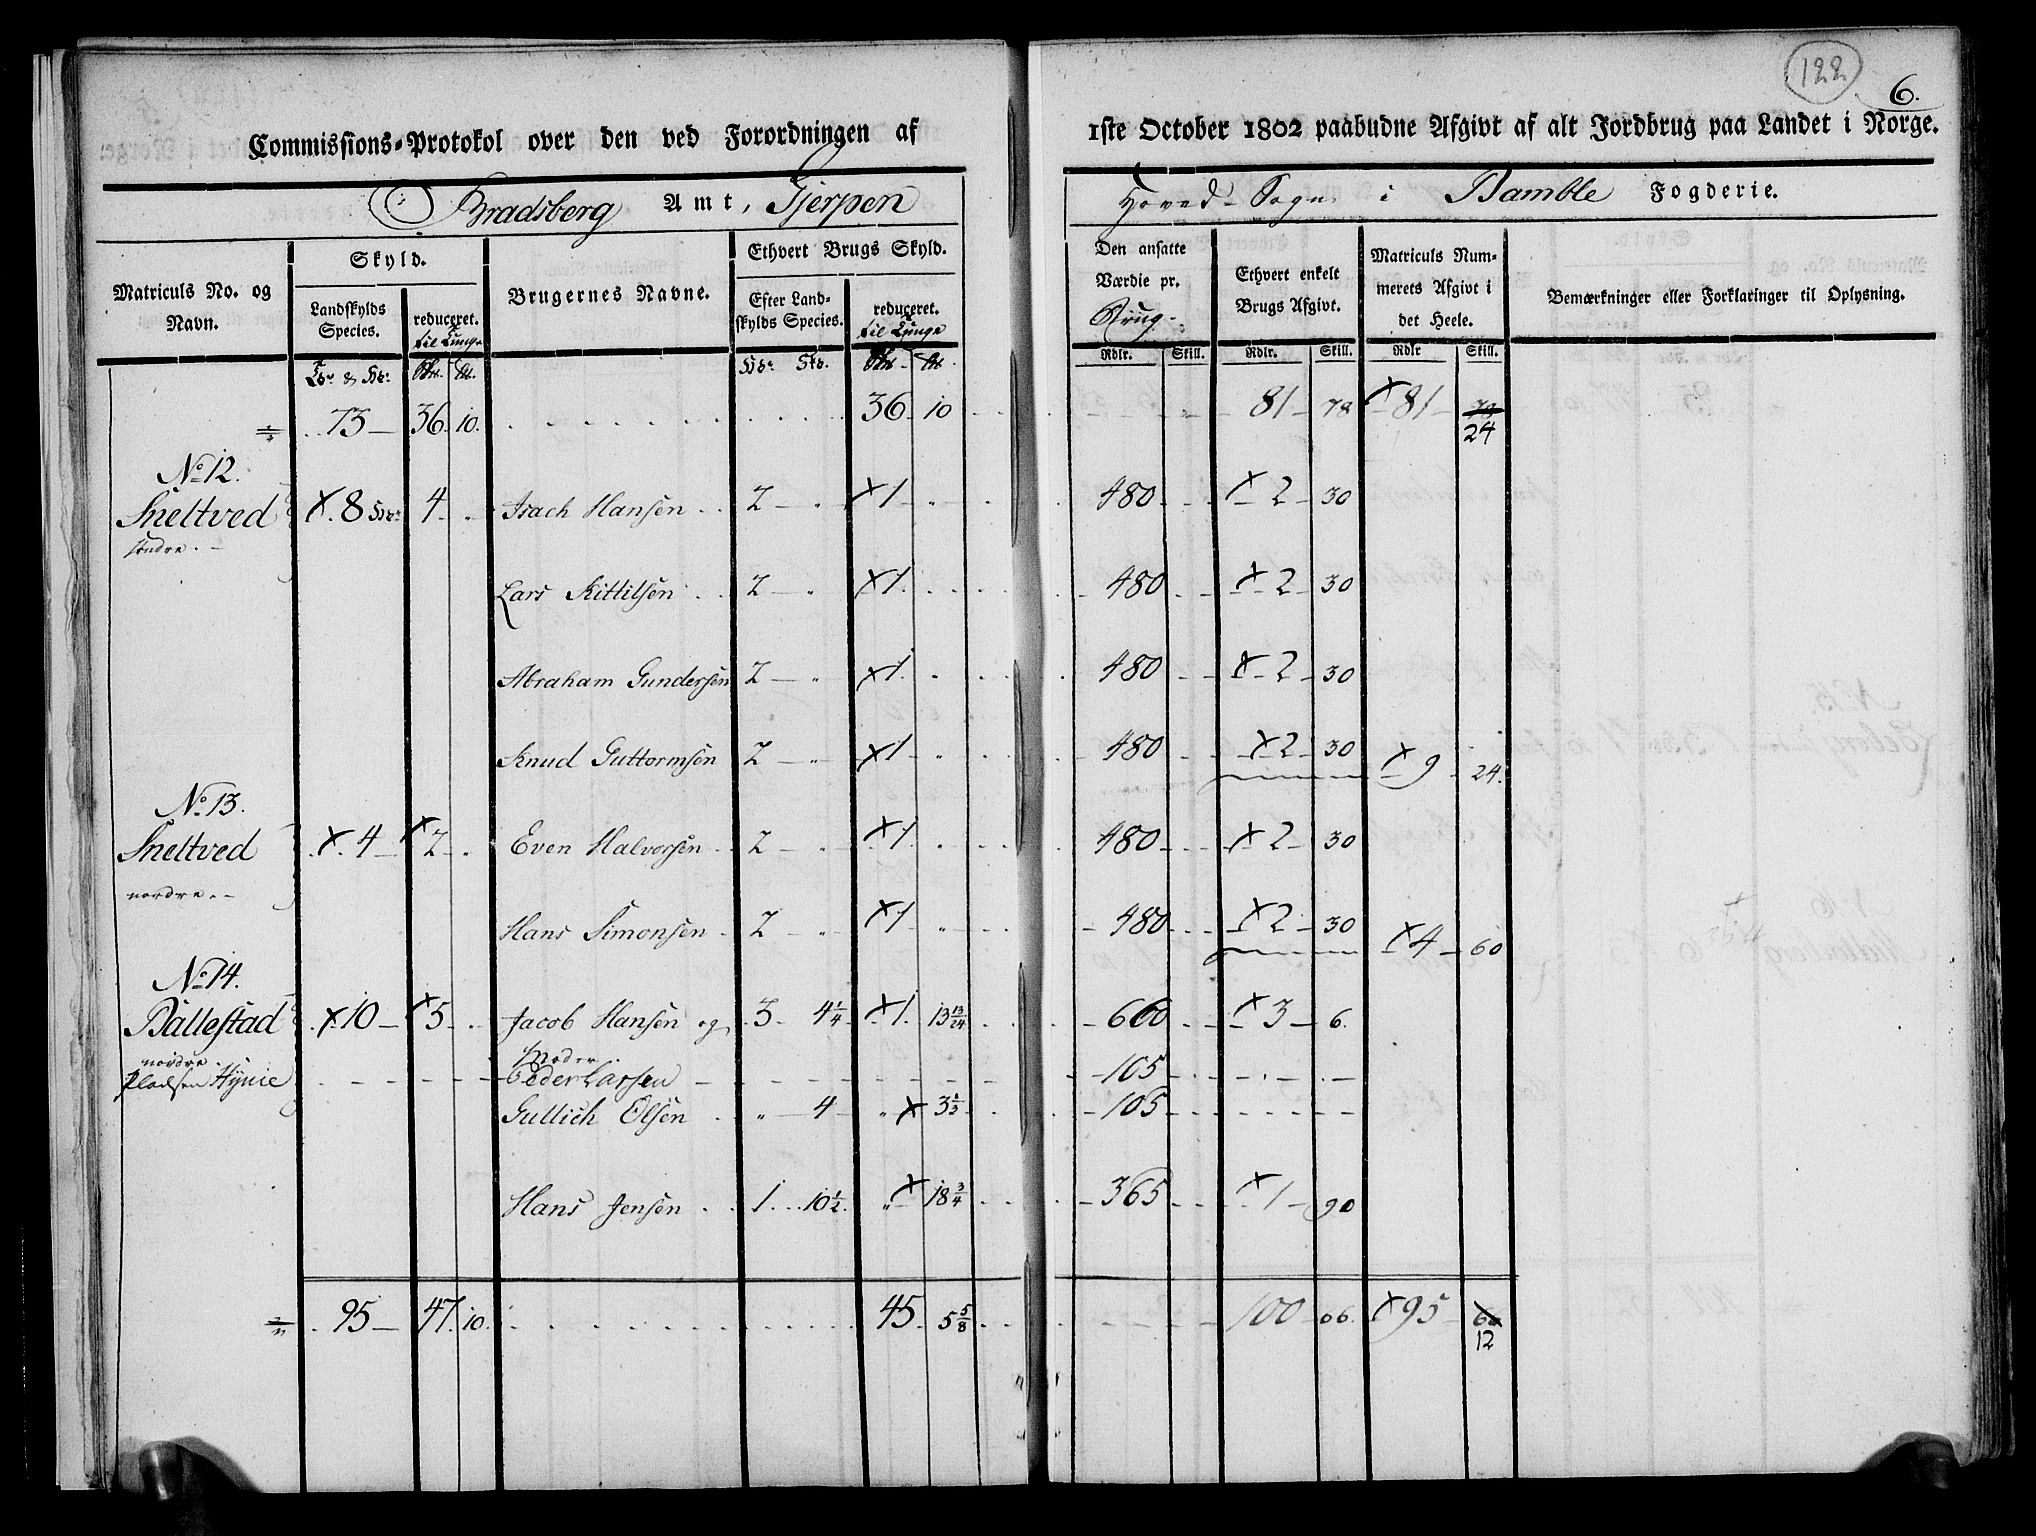 122
6.
Commissions-Protokol over den ved Forordningen af 1ste October 1802 paabudne Afgivt af alt Jordbrug paa Landet i Norge.
Bradsberg Amt, Gjerpen Hoved Sogn i Bamble Fogderie.
Matriculs No. og Navn.
Skyld.
Landskylds Species.
reduceret. til Tunge
Brugernes Navne.
Ethvert Brugs Skyld.
Efter Landskylds Species.
reduceret. til Tunge
Den ansatte Værdie pr. Brug.
Ethvert enkelt Brugs Afgivt.
Matriculs Nummerets Afgivt i det Heele.
Bemærkninger eller Forklaringer til Oplysning.
Rdlr. Skill. Rdlr. Skill. Rdlr Skill.
73 36 10. 36 10 81 78 x 81 78
24
No. 12.
Sneltved x. 8 4 Isach Hansen 2 x1 480 x 2 30
söndre.
Lars Kittilsen 2 x1. 480 x 2 30
Abraham Gundersen 2 x1. 480 x 2 30
Knud Guttormsen 2 x1 480 x 2 30 x 9 24.
No. 13.
Sneltved x. 4 x 2 Even Halvorsen 2 x1. 480 x 2 30
nordre.
Hans Simonsen 2 x1 480 x 2 30 x 4 60
No. 14.
Ballestad x 10 x 5 Jacob Hansen og 3 4 1/4 x1. 13 13/24 660 x 3 6.
nordre. Moder.
Pladsen Hynie Peder Larsen 105
Gullich Olsen " 4 " x 3 1/3 105
Hans Jensen 1 10 1/2. " x 18 3/4 365 x 1 90
95 47. 10. 45 5 5/8 100 66. x 95 60
12